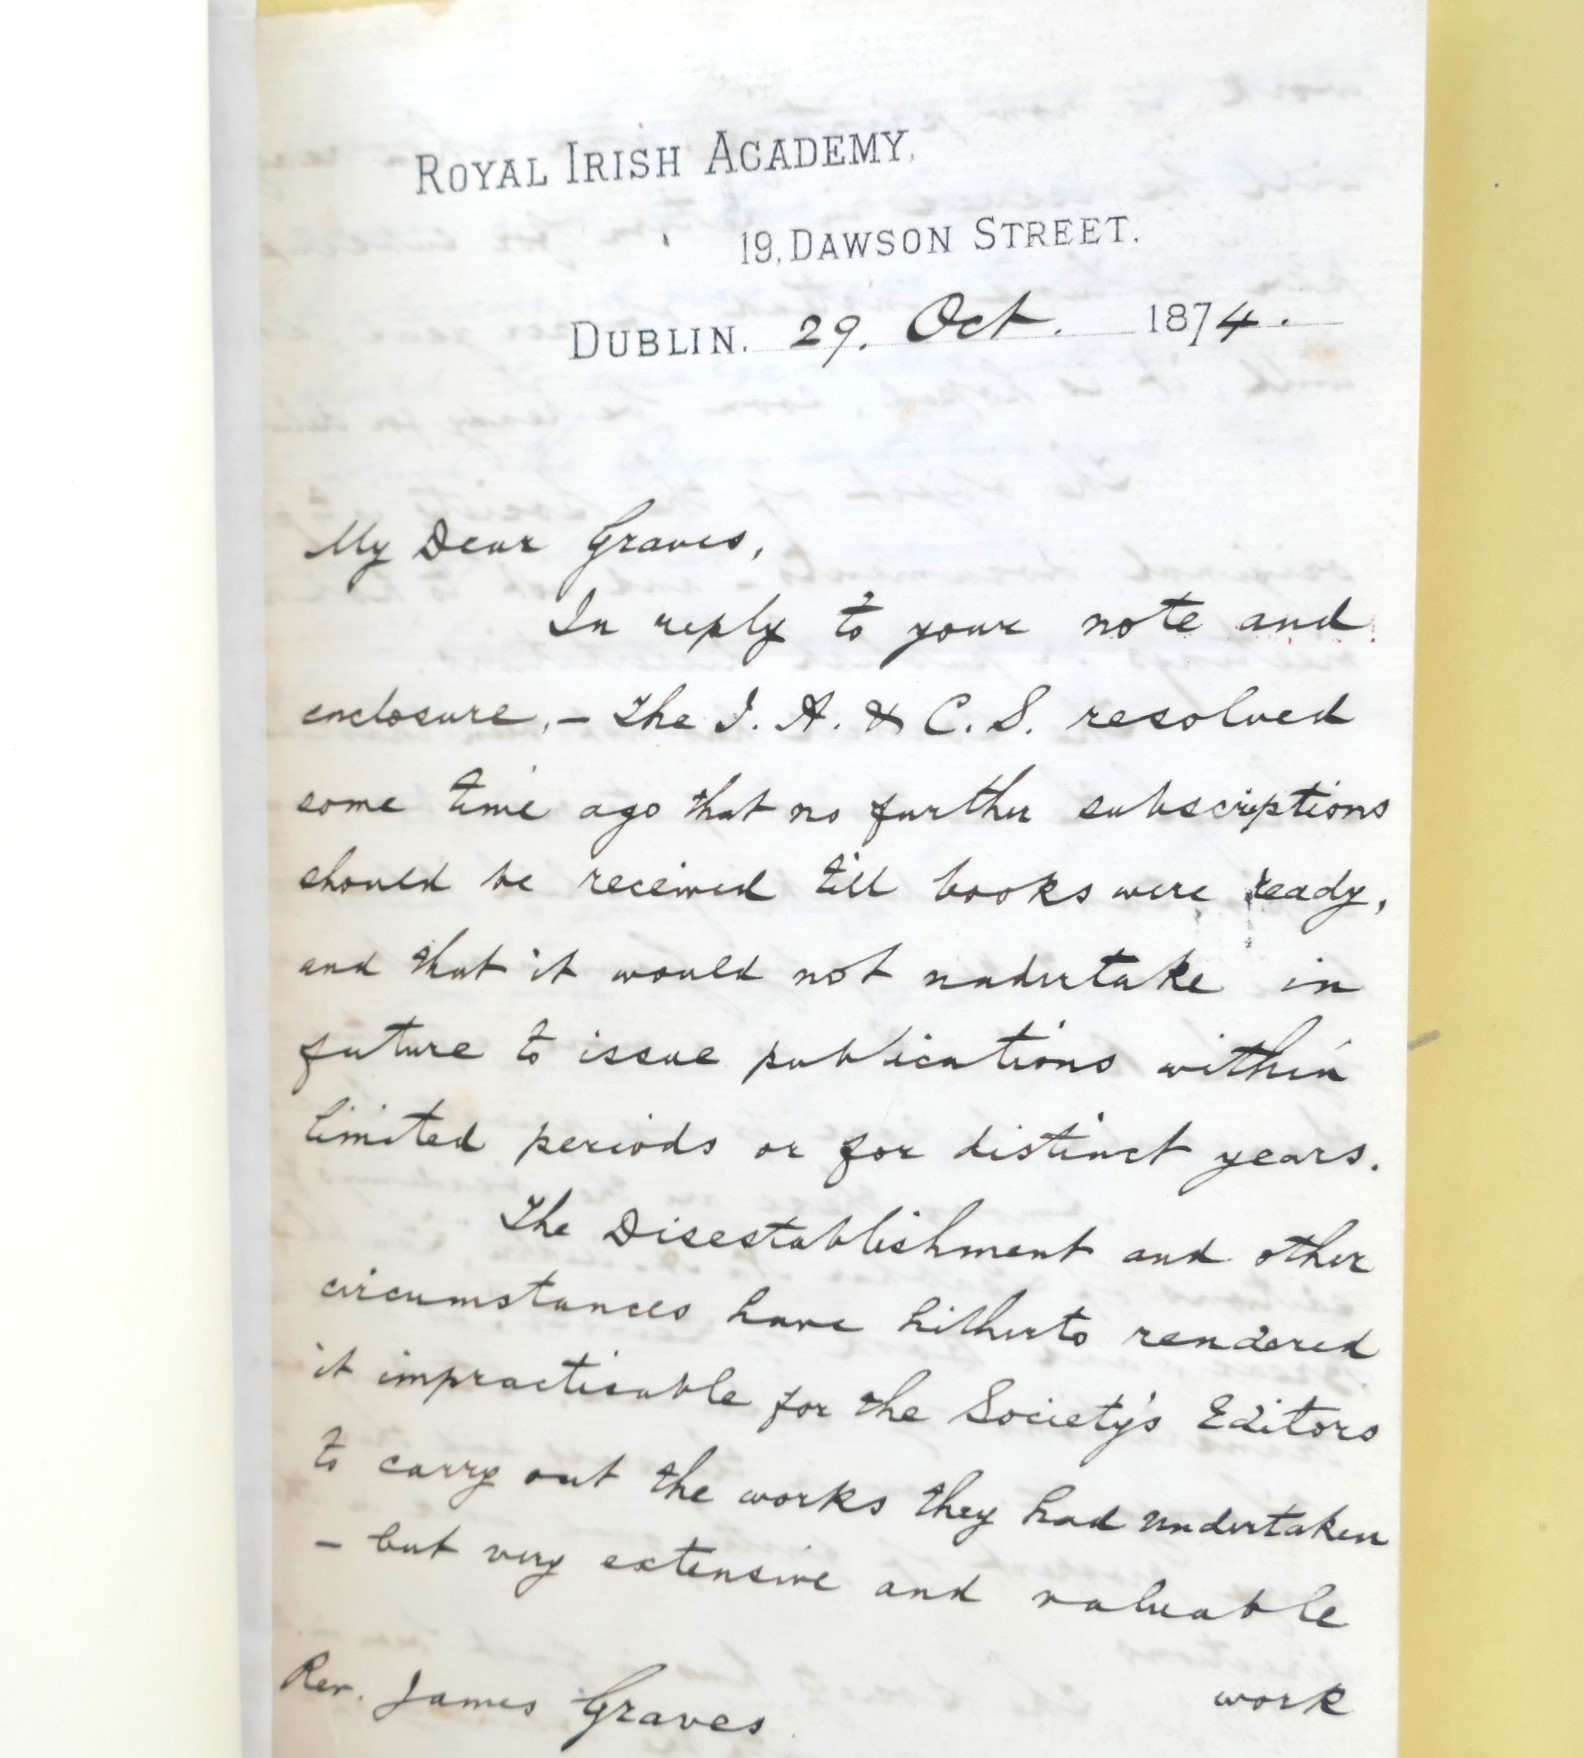 ROYAL IRISH ACADEMY,
19, DAWSON STREET.
DUBLIN. 29. Oct. 1874.
My Dear Graves,
In reply to your note and
enclosure, – The I. A. & C. S. resolved
some time ago that no further subscriptions
should be received till books were ready,
and that it would not undertake in
future to issue publications within
limited periods or for distinct years.
The Disestablishment and other
circumstances have hitherto rendered
it impracticable for the Society's Editors
to carry out the works they had undertaken
– but very extensive and valuable
work
Rev. James Graves